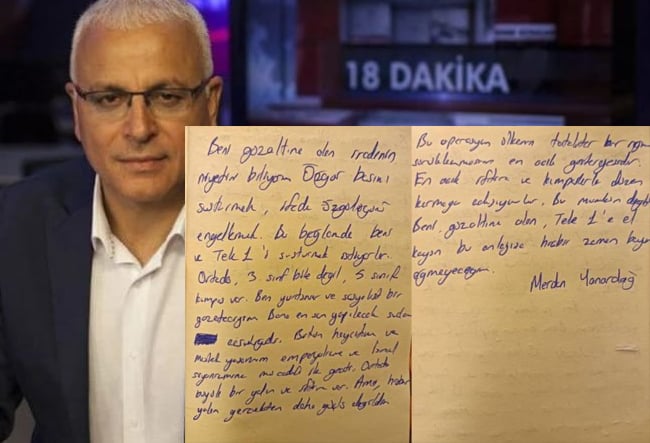 18 DAKİKA
Beni gözaltına alan iradenin
niyetini biliyorum Özgür basını
susturmak, ifade özgürlüğünü
engellemek. Bu bağlamda beni
ve Tele 1'i susturmak istiyorlar.
Ortada, 3. sınıf bile değil, 5 sınıf
kumpas var. Ben yurtsever ve sosyalist bir
gazeteciyim Bana en son yapılacak suçlama
casusluktur. Bütün hayatım ve
meslek yaşamım emperyalizme ve İsrail
siyonizmine mücadele ile geçti. Ortada
büyük bir yalan ve iftira var. Ama, hiçbir
yalan gerçekten daha güçlü değildir.
Bu operasyon ülkenin totaliter bir rejime
sürüklenmesinin en açık göstergesidir.
En açık iftira ve kumpaslarla düzen
kurmaya çalışıyorlar. Bu mümkün değil
Beni gözaltına alan, Tele 1'e el
koyan bu anlayışa hiçbir zaman boyun
eğmeyeceğim.
Merdan Yanardağ